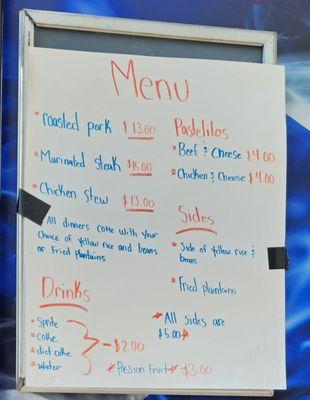 Menu
* roasted pork $13.00
* Marinated steak $15.00
* Chicken stew $13.00
* All dinners come with your
choice of yellow rice and beans
or Fried Plantains
Pastelitos
* Beef & Cheese $4.00
* Chicken & Cheese $4.00
Sides
* Side of yellow rice &
beans
* Fried plantains
* All sides are
$5.00 *
Drinks
* Sprite
* Coke
* diet coke
* Water
- $2.00
* Passion Fruit * $3.00